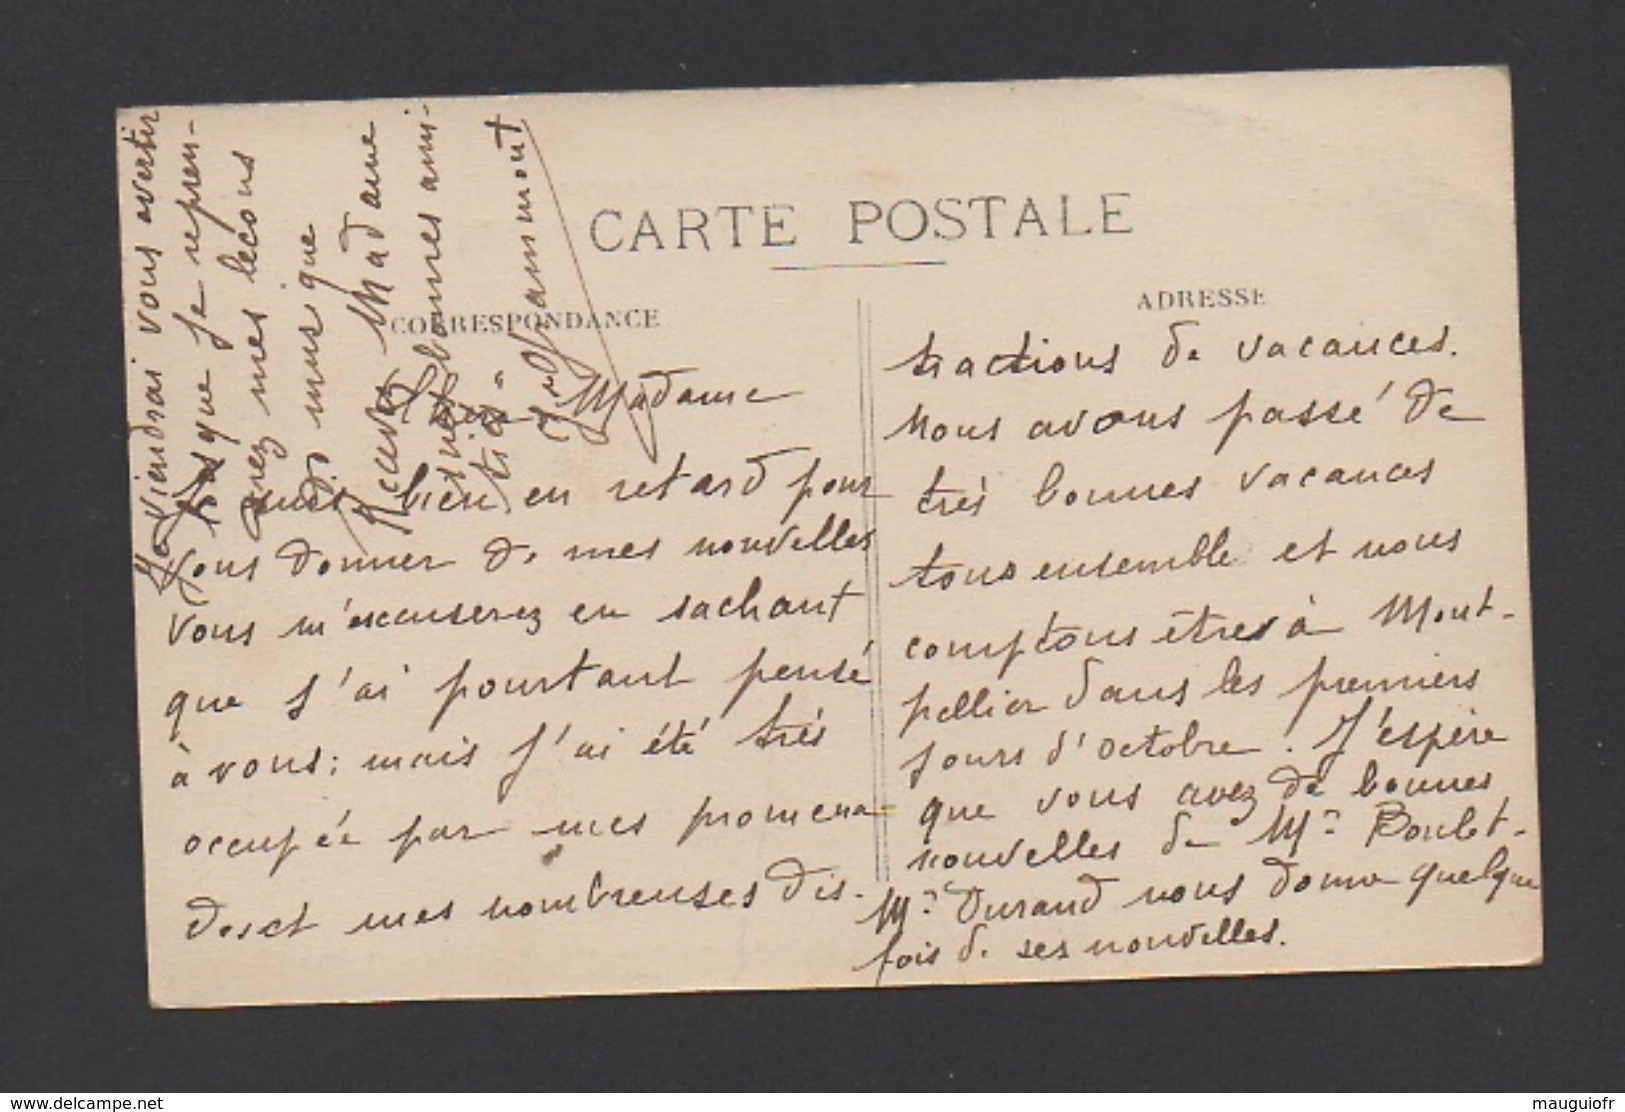 CARTE POSTALE
CORRESPONDANCE
ADRESSE
Chère Madame
Je suis bien en retard pour
vous donner de mes nouvelles
vous m'excuserez en sachant
que j'ai pourtant pensé
à vous; mais j'ai été très
occupée par mes promena
des et mes nombreuses dis-
tractions de vacances.
Nous avons passé de
très bonnes vacances
tous ensemble et nous
comptons êtres à Mont-
pellier dans les premiers
jours d'octobre. J'espère
que vous avez de bonnes
nouvelles de Mr Boulet-
Mr Durand nous donne quelque
fois de ses nouvelles.
Je viendrai vous avertir
lorsque je repren-
drez mes leçons
de musique
Recevez Madame
mes bonnes ami-
tiés
www.delcampe.net
mauguiofr